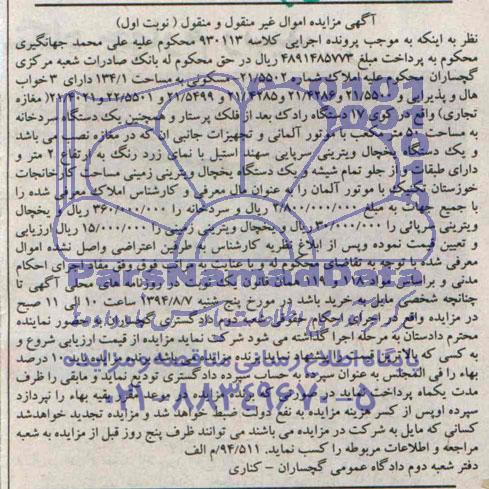 آگهی مزایده اموال غیر منقول و منقول ( نوبت اول)
نظر به اینکه به موجب پرونده اجرایی کلاسه ۹۳۰۱۱۳ محکوم علیه علی محمد جهانگیری
محکوم به پرداخت مبلغ ۴۸۹۱۴۸۵۷۷۳ ریال در حق محکوم له بانک صادرات شعبه مرکزی
گچساران محکوم علیه املاک شماره ۲۱/۵۵۰۲ مسکونی به مساحت ۱۳۴/۱ دارای ۳ خواب
هال و پذیرایی و ۲۱/۵۵۰۰ و ۲۱/۴۲۸۶ و ۲۱/۴۲۸۵ و ۲۱/۵۴۹۹ و ۲۲/۵۵۰۱ و ۲۲/۴۰۲۱( مغازه
تجاری) واقع در کوی ۱۷ دستگاه رادک بعد از فلک پرستار و همچنین یک دستگاه سردخانه
به مساحت ۵۰ متر مکعب با موتور آلمانی و تجهیزات جانبی آن که در مغازه نصب می باشد
و یک دستگاه یخچال ویترینی سرپایی سهند استیل با نمای زرد رنگ به ارتفاع ۲ متر و
دارای طبقات و از جلو تمام شیشه و یک دستگاه یخچال ویترینی زمینی مساحت کارخانجات
خوزستان تکنیک با موتور آلمان را به عنوان مال معرفی و کارشناس املاک معرفی شده را
با جمیع جهات به مبلغ ۲/۸۰۰/۰۰۰/۰۰۰ ریال و سردخانه را ۳۶۰/۰۰۰/۰۰۰ ریال و یخچال
ویترینی سرپائی را ۳۰/۰۰۰/۰۰۰ ریال و یخچال ویترینی زمینی را ۱۵/۰۰۰/۰۰۰ ریال ارزیابی
و تعیین قیمت نموده وپس از ابلاغ نظریه کارشناس به طرفین اعتراضی واصل نشده اموال
معرفی شده با توجه به تقاضای محکوم له و با عنایت به مراتب فوق وفق مفاد اجرای احکام
مدنی و براساس مواد ۱۱۸ و ۱۱۹ همان قانون یک نوبت در روزنامه های محلی آگهی تا
چنانچه شخصی مایل به خرید باشد در مورخ پنج شنبه ۱۳۹۴/۸/۷ ساعت ۱۰ الی ۱۱ صبح
در مزایده واقع در اجرای احکام حقوقی شعبه دوم دادگستری گچساران و حضور نماینده
محترم دادستان به مرحله اجرا گذاشته می شود شرکت نماید مزایده از قیمت ارزیابی شروع و
به کسی که بالاترین قیمت را پیشنهاد نماید برنده مزایده می باشد برنده مزایده باید ۱۰ درصد
بهاء را فی المجلس به عنوان سپرده به حساب سپرده دادگستری تودیع نماید و مابقی را ظرف
مدت یکماه پرداخت نماید در صورتی که برنده مزایده در موعد مقرر بقیه بهاء را نپردازد
سپرده اوپس از کسر هزینه مزایده به نفع دولت ضبط خواهد شد و مزایده تجدید خواهدشد
کسانی که مایل به شرکت در مزایده می باشند می توانند ظرف پنج روز قبل از مزایده به شعبه
مراجعه و اطلاعات مربوطه را کسب نماید. ۹۴/۵۱۱/م الف
دفتر شعبه دوم دادگاه عمومی گچساران - کناری
ParsNamadData
۰۲۱-۸۸۳۴۹۶۷۰-۵